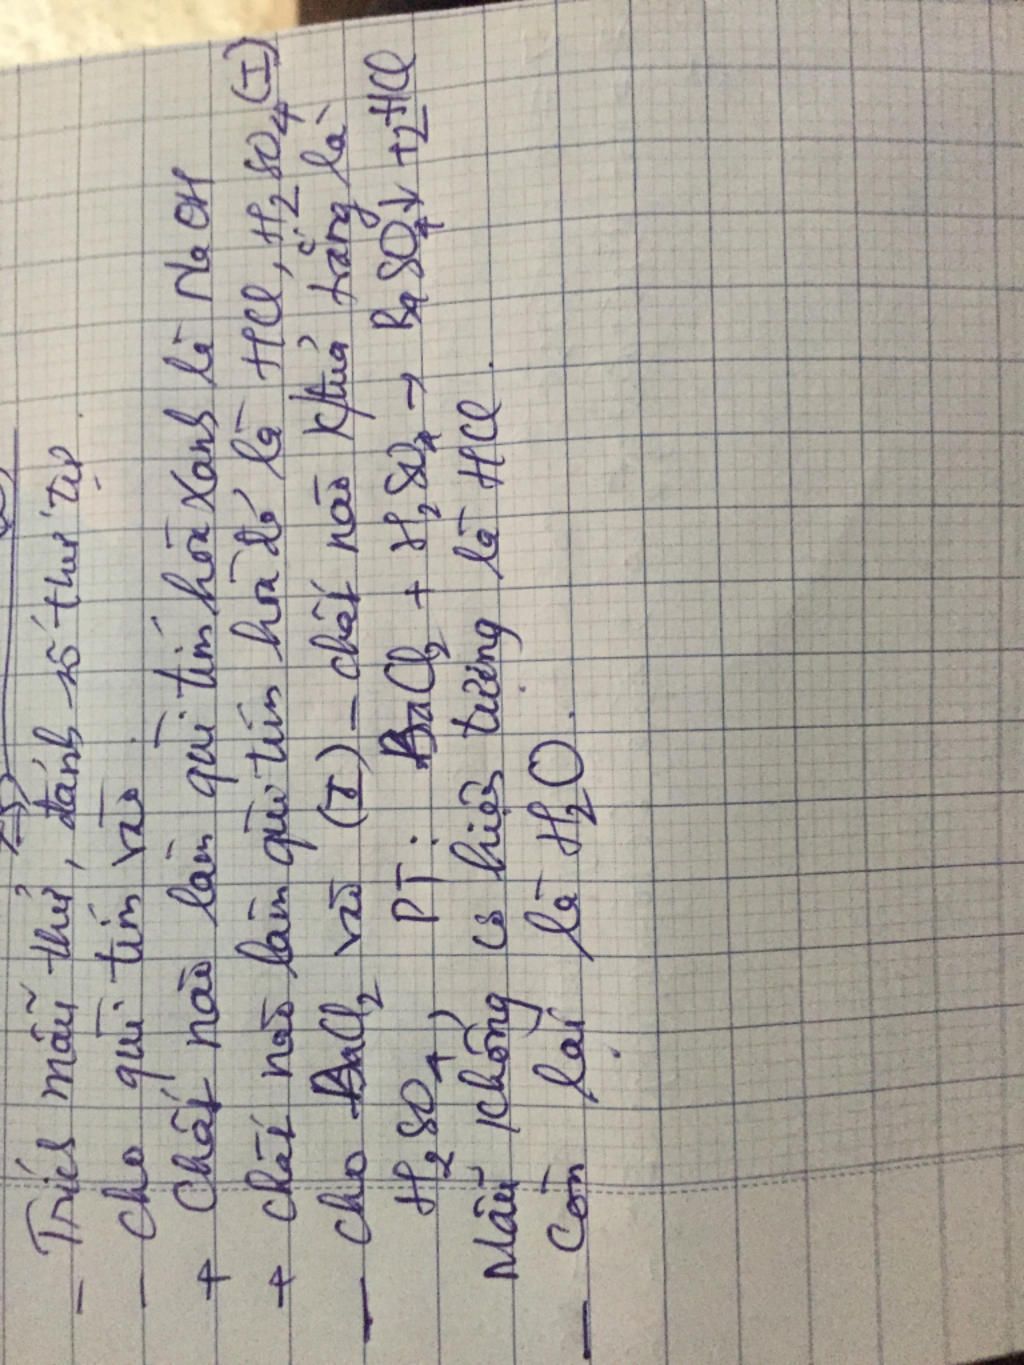 - Trích mẫu thử, đánh số thứ tự
- Cho quì tím vào
+ Chất nào làm quì tím hóa xanh là NaOH
+ Chất nào làm quì tím hóa đỏ là HCl, H2SO4 (I)
- Cho BaCl2 vào (I) - chất nào kết tủa trắng là
H2SO4, PT: BaCl2 + H2SO4 → BaSO4↓ + 2HCl
Mẫu không có hiện tượng là HCl.
- Còn lại là H2O.